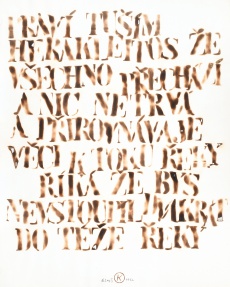 PRAVÍ TUŠÍM
HÉRAKLEITOS ŽE
VŠECHNO PŘECHÁZÍ
A NIC NETRVÁ
A PŘIROVNÁVAJE
VĚCI K TOKU ŘEKY
ŘÍKÁ ŽE BYS
NEVSTOUPIL DVAKRÁT
DO TÉŽE ŘEKY
K